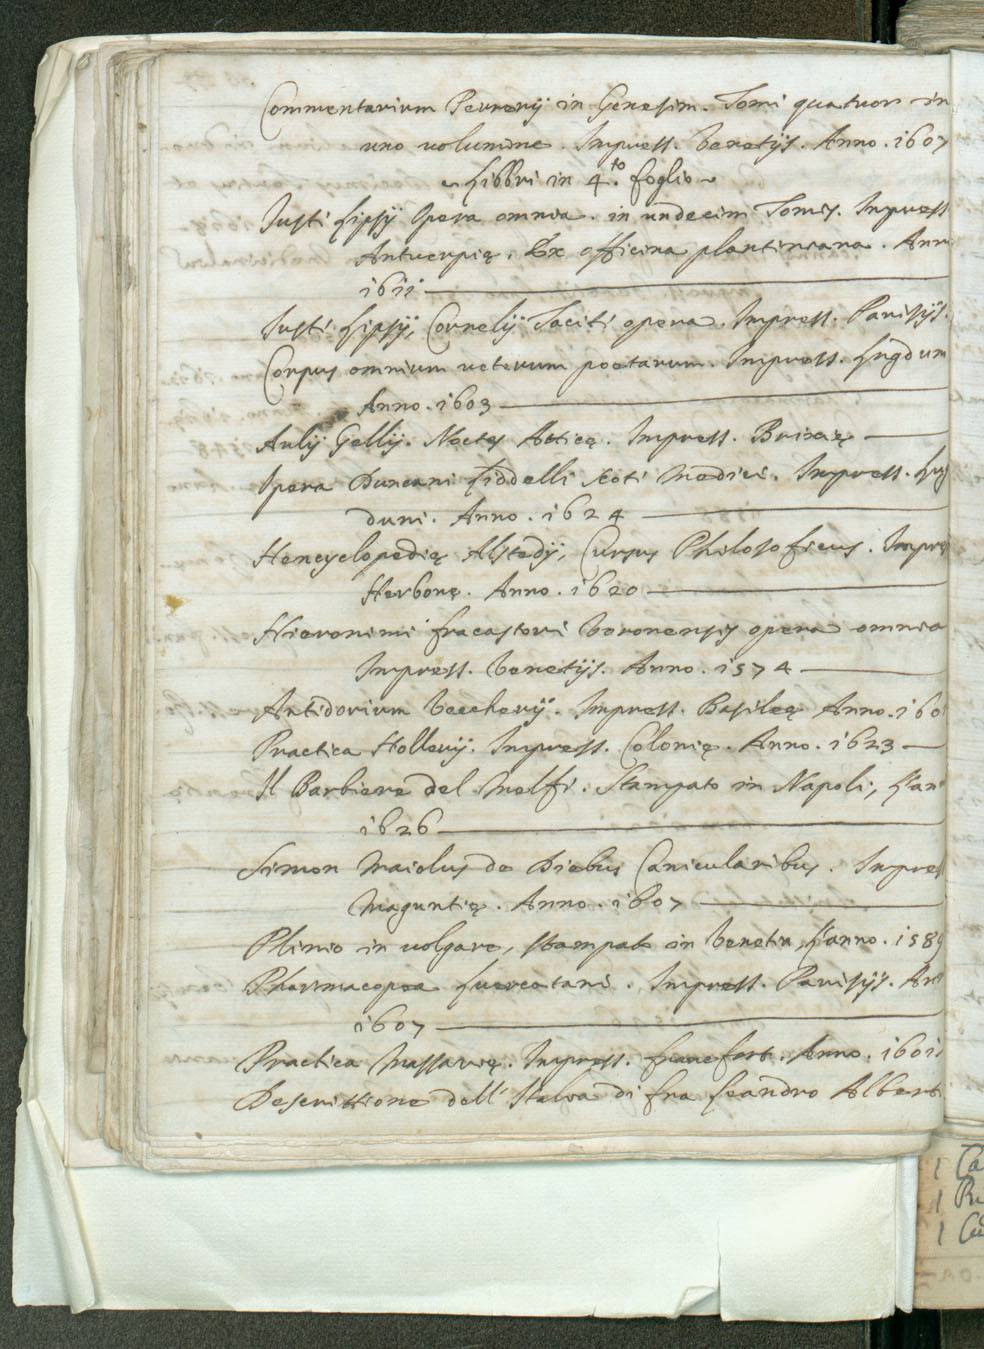 Commentarium Pererij in Genesim. Tomi quatuor in
uno volumine. Impress. Venetijs. Anno. 1607
Libbri in 4.to foglio
Iusti Lipsij Opera omnia. in undecim Tomis. Impress
Antuerpię. Ex officina plantiniana. Ann
1611
Iusti Lipsij, Cornelij Taciti opera. Impress. Parisijs.
Corpus omnium veterum poetarum. Impress. Lugdum
Anno. 1603
Aulij Gellij. Noctes Atticę. Impress. Brixię
Opera Duncani Liddelli scoti medici. Impress. Lug
duni. Anno. 1624
Hencyclopedię Alstedij, Cursus Philosoficus. Impre
Herbonę. Anno. 1620
Hieronimi fracastori Veronensis opera omnia
Impress. Venetijs. Anno. 1574
Antidorium Veecherij. Impress. Basileę Anno. 160
Practica Hollerij. Impress. Colonię. Anno. 1623
Il Barbiere del Melfi. Stampato in Napoli, l'an
1626
Simon Maiolus de Diebus Canicularibus. Impres
Maguntię. Anno. 1607
Plinio in volgare, stampato in Venetia, l'anno. 1589
Pharmacopea Quercetani. Impress. Parisijs. An
1607
Practica Massarię. Impress. francfort. Anno. 1601
Descrittione dell'Italia di fra Leandro Albert
1 Ca
1
1